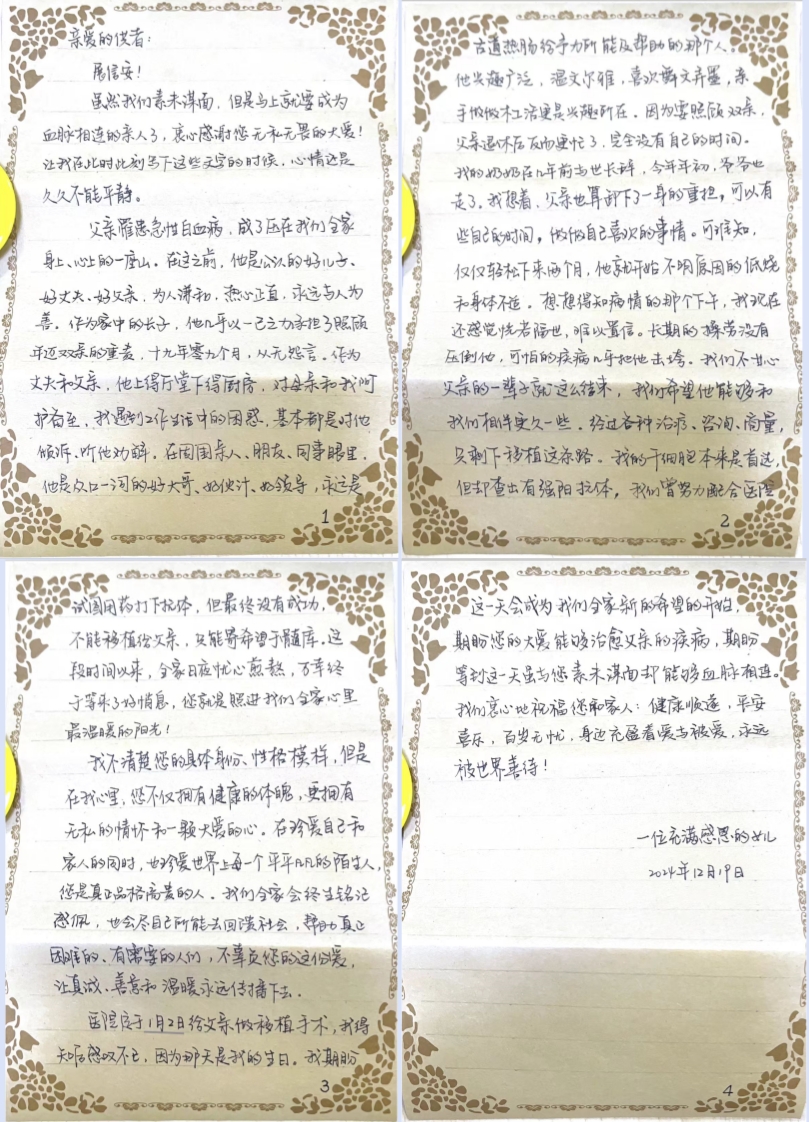 亲爱的供者：
展信安！
虽然我们素未谋面，但是马上就要成为
血脉相连的亲人了，衷心感谢您无私无畏的大爱！
让我在此时此刻写下这些文字的时候，心情还是
久久不能平静。
父亲罹患急性白血病，成了压在我们全家
身上、心上的一座山。在这之前，他是公认的好儿子、
好丈夫、好父亲，为人谦和，热心正直，永远与人为
善。作为家中的长子，他几乎以一己之力承担了照顾
年迈双亲的重责，十九年零九个月，从无怨言。作为
丈夫和父亲，他上得厅堂下得厨房，对母亲和我呵
护备至，我遇到工作生活中的困惑，基本都是对他
倾诉、听他劝解，在周围亲人、朋友、同事眼里，
他是众口一词的好大哥、好伙计、好领导，永远是
1
古道热肠给予力所能及帮助的那个人。
他兴趣广泛，温文尔雅，喜欢舞文弄墨，亲
手做做木工活更是兴趣所在。因为要照顾双亲，
父亲退休后反而更忙了，完全没有自己的时间。
我的奶奶在几年前与世长辞，今年年初，爷爷也
走了。我想着，父亲也算卸下了一身的重担，可以有
些自己的时间，做做自己喜欢的事情。可谁知，
仅仅轻松下来两个月，他就开始不明原因的低烧
和身体不适。想想得知病情的那个下午，我现在
还感觉恍若隔世，难以置信。长期的操劳没有
压倒他，可怕的疾病几乎把他击垮。我们不甘心
父亲的一辈子就这么结束，我们希望他能够和
我们相伴更久一些。经过各种治疗、咨询、商量，
只剩下移植这条路。我的干细胞本来是首选，
但却查出有强阳抗体，我们曾努力配合医院
2
试图用药打下抗体，但最终没有成功，
不能移植给父亲，只能寄希望于髓库。这
段时间以来，全家日夜忧心煎熬，万幸终
于等来了好消息，您就是照进我们全家心里
最温暖的阳光！
我不清楚您的具体身份、性格模样，但是
在我心里，您不仅拥有健康的体魄，更拥有
无私的情怀和一颗大爱的心。在珍爱自己和
家人的同时，也珍爱世界上每一个平平凡凡的陌生人，
您是真正品格高贵的人。我们全家会终生铭记
感佩，也会尽自己所能去回馈社会，帮助真正
困难的、有需要的人们，不辜负您的这份爱，
让真诚、善意和温暖永远传播下去。
医院定于1月2日给父亲做移植手术，我得
知后感叹不已，因为那天是我的生日。我期盼
3
这一天会成为我们全家新的希望的开始，
期盼您的大爱能够治愈父亲的疾病，期盼
等到这一天虽与您素未谋面却能够血脉相连。
我们衷心地祝福您和家人：健康顺遂，平安
喜乐，百岁无忧，身边充盈着爱与被爱，永远
被世界善待！
一位充满感恩的女儿
2024年12月19日
4